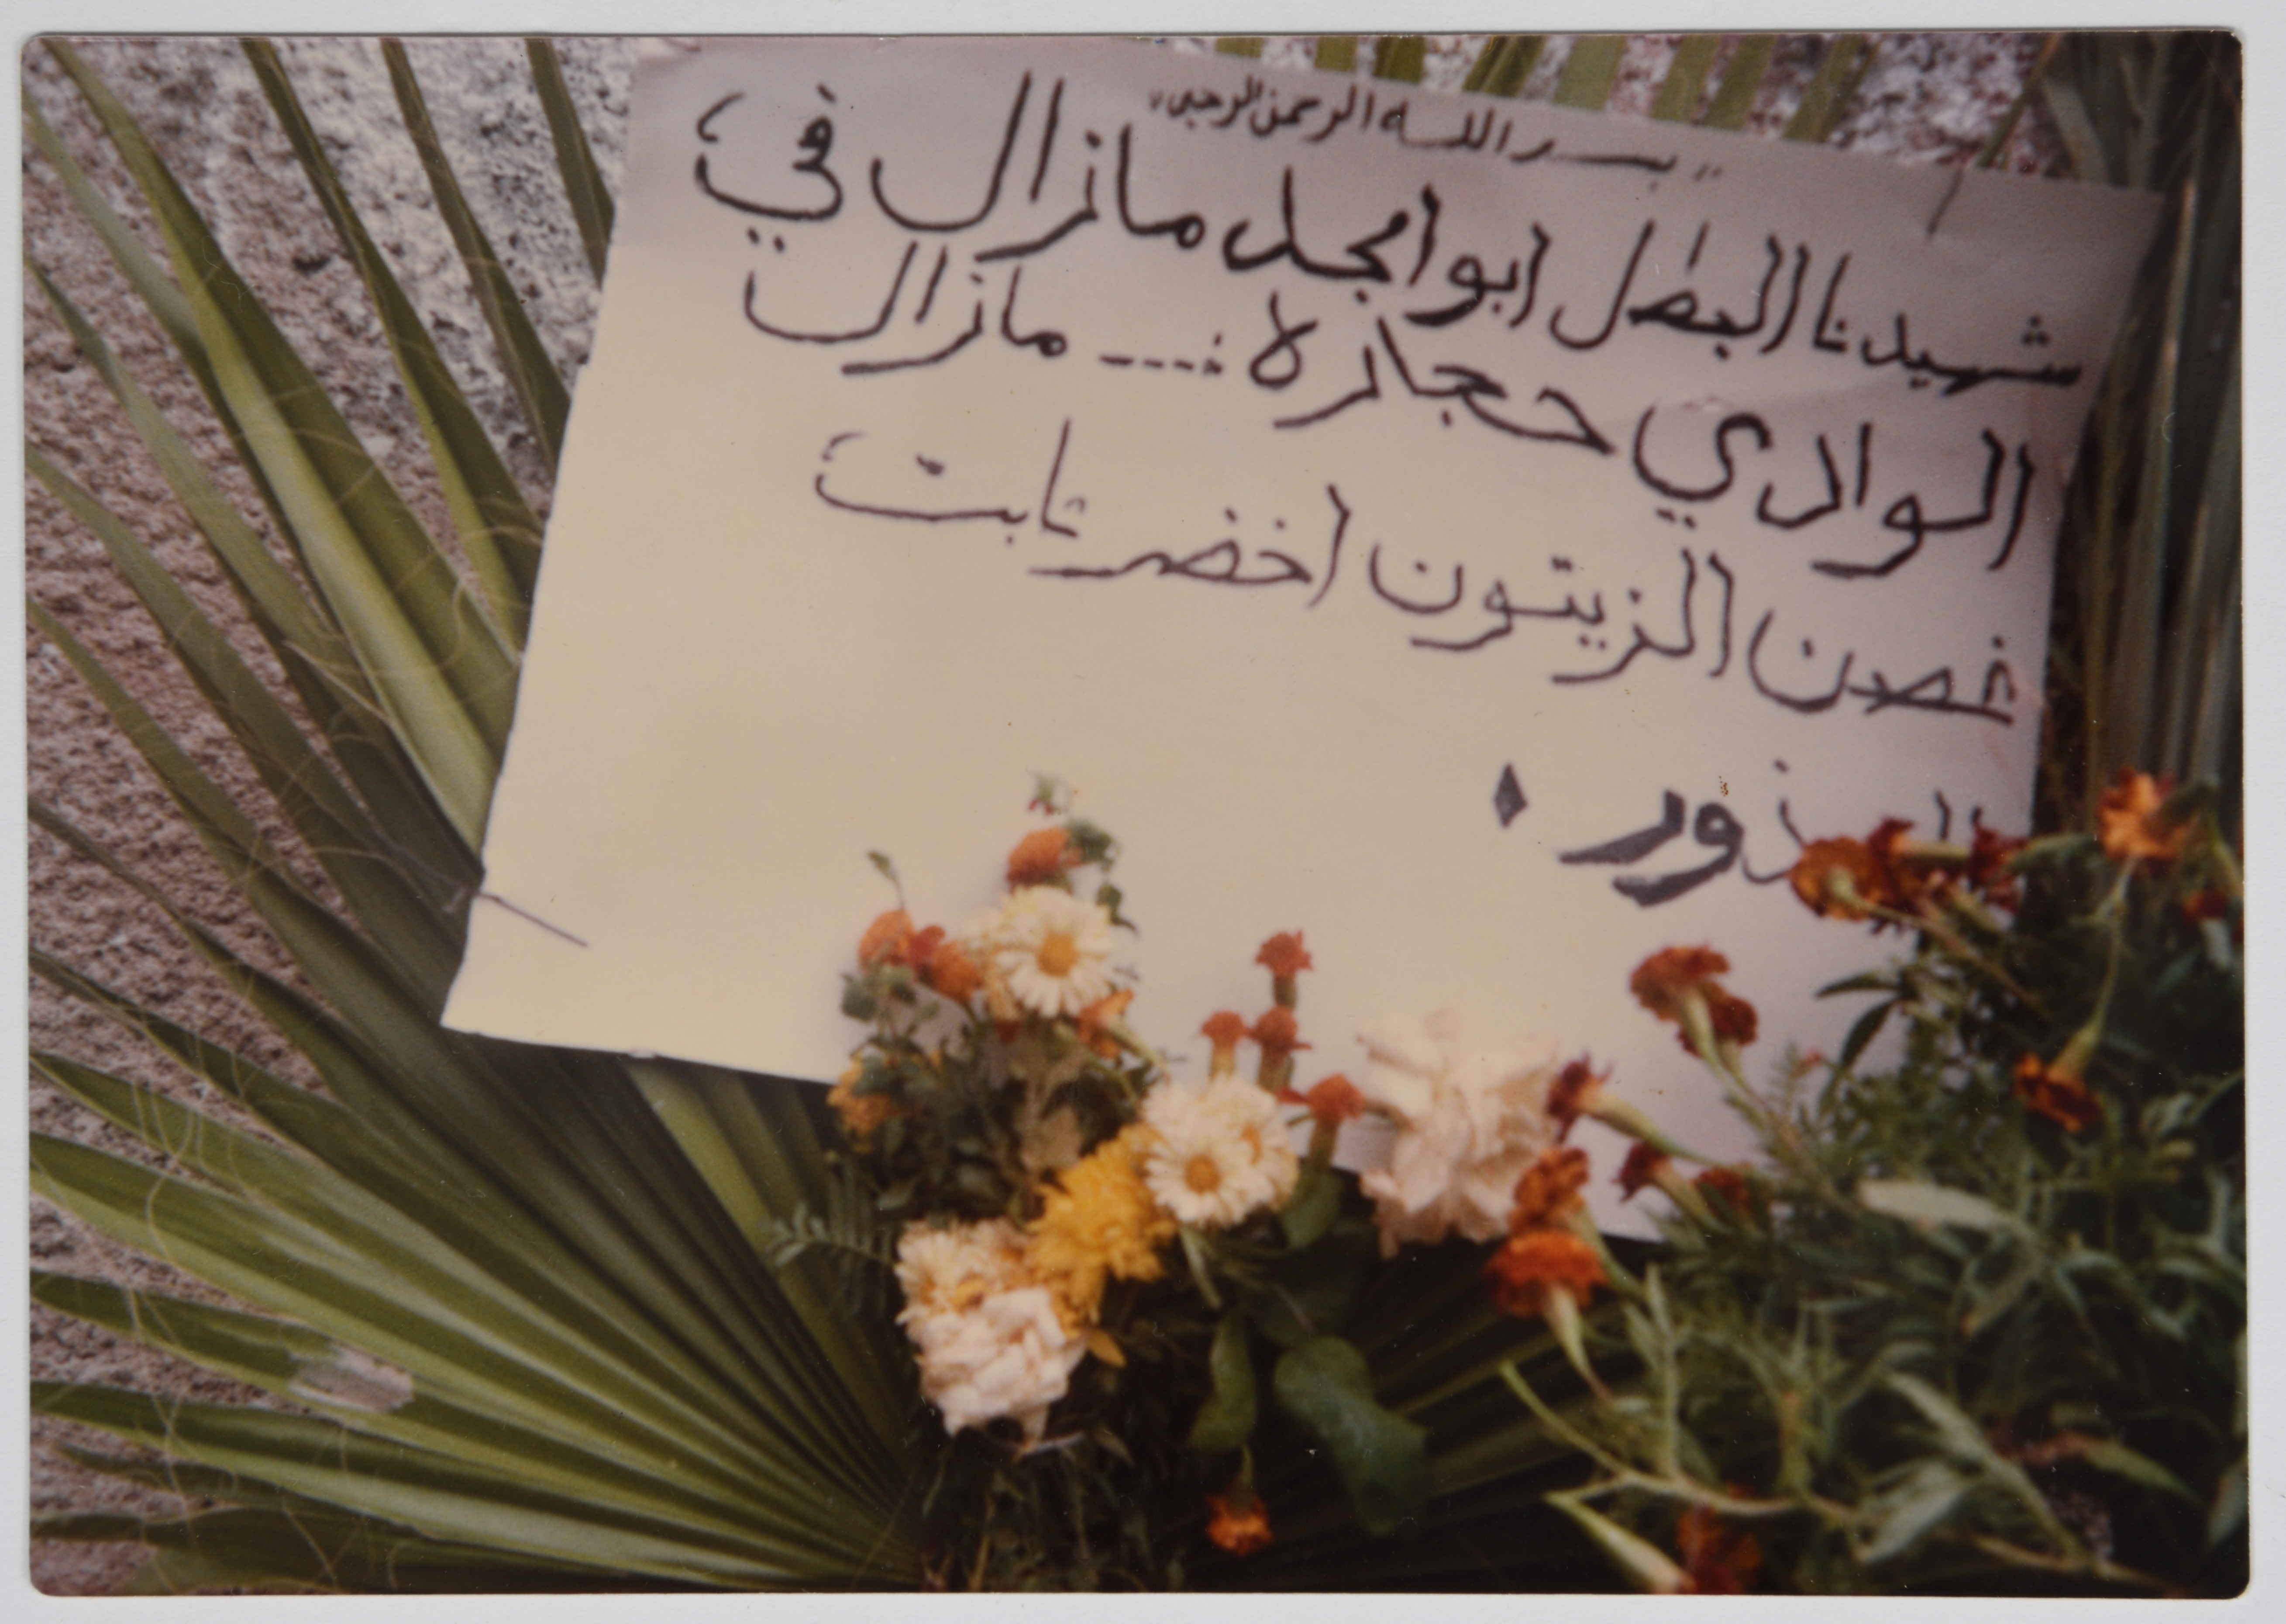 بسم الله الرحمن الرحيم
شهيدنا البطل ابو امجد مازال في
الوادي حجارة .... مازال
غصن الزيتون اخضر ثابت
الجذور .